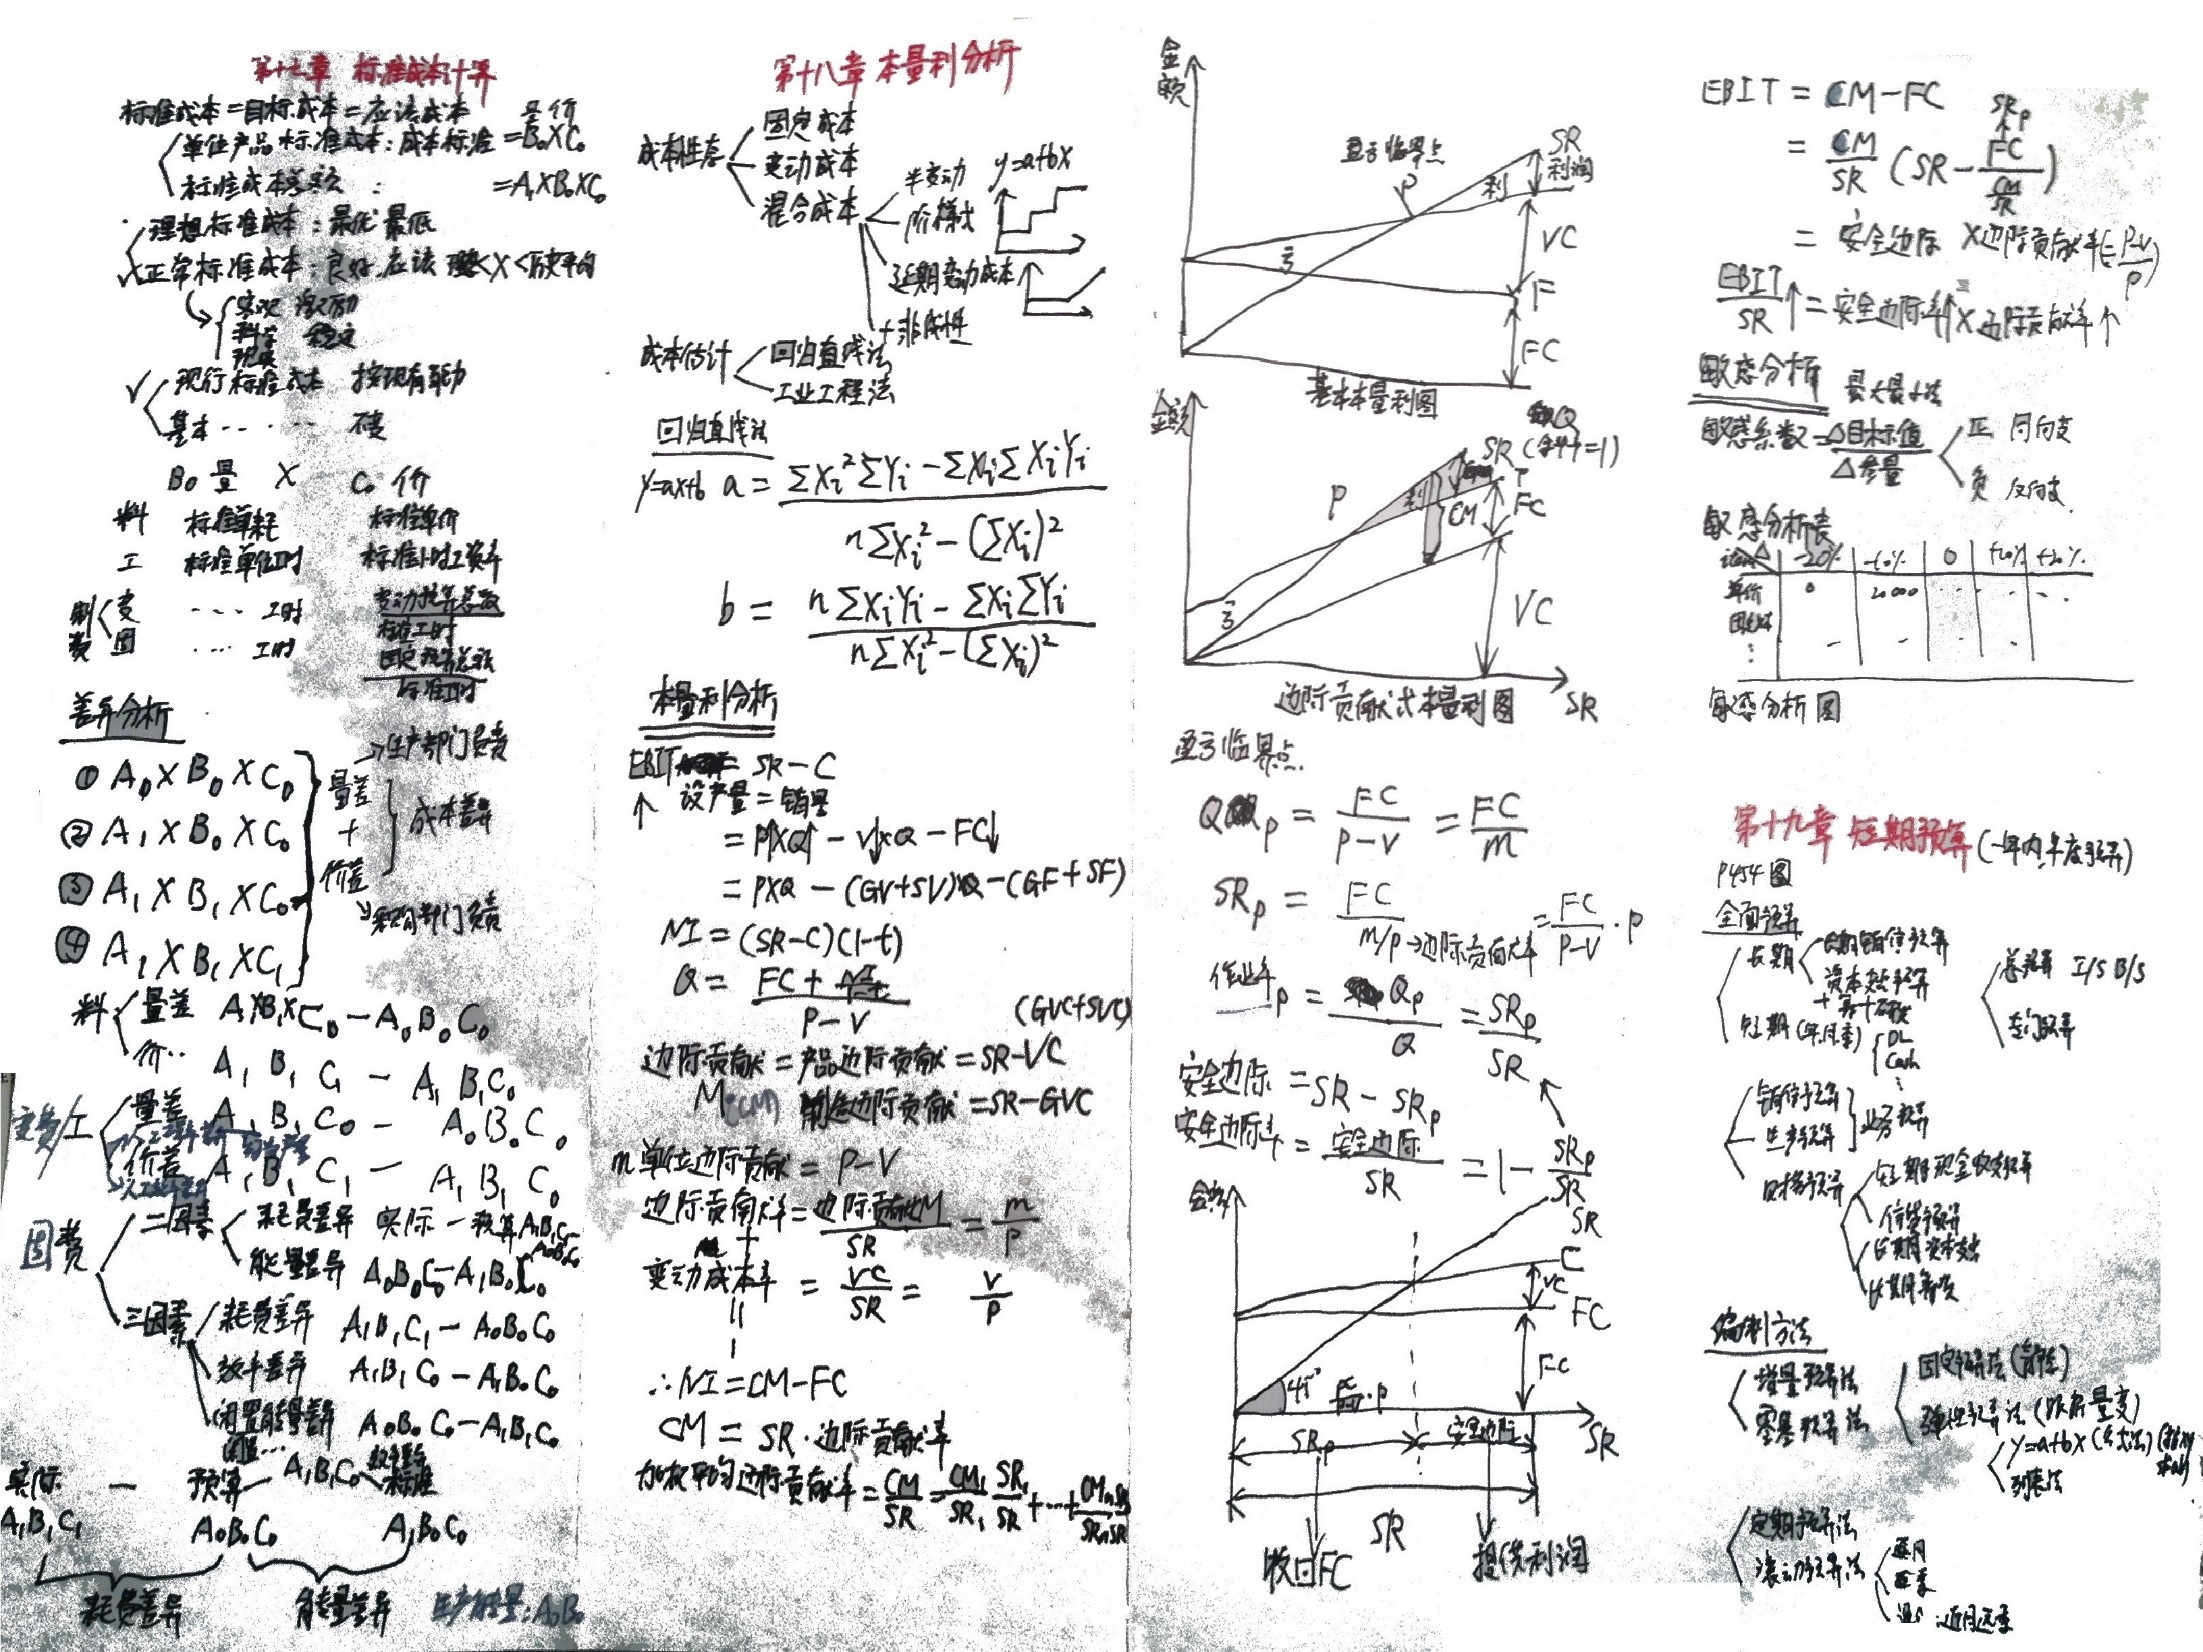 第十七章 标准成本计算
标准成本=目标成本=应该成本
量 价
单位产品标准成本:成本标准=B₀×C₀
标准成本总额: =A₁×B₀×C₀
理想标准成本:最优 最低
√正常标准成本:良好.应该 理想<X<历史平均
客观 激励
科学 稳定
现实
√现行标准成本 按现有
基本····· 不变
B₀ 量 × C₀ 价
料 标准单耗 标准单价
工 标准单位工时 标准小时工资率
制费
变 ··· 工时 变动预算总数
标准工时
固 ···· 工时 固定预算总数
标准工时
差异分析
①A₀×B₀×C₀
②A₁×B₀×C₀
③A₁×B₁×C₀
④A₁×B₁×C₁
量差
+
价差
→生产部门负责
成本差异
→采购部门负责
料 量差 A₁B₁×C₀-A₀B₀C₀
价·· A₁B₁C₁-A₁B₁C₀
变费/工 量差 A₁B₁C₀-A₀B₀C₀
价差 A₁B₁C₁-A₁B₁C₀
固费
二因素 耗费差异 实际-预算 A₁B₁C₁-A₀B₀C₀
能量差异 A₀B₀C₀-A₁B₀C₀
三因素 耗费差异 A₁B₁C₁-A₀B₀C₀
效率差异 A₁B₁C₀-A₁B₀C₀
闲置能量差异 A₀B₀C₀-A₁B₁C₀
实际 - 预算 - A₁B₁C₀ 标准
A₁B₁C₁ A₀B₀C₀ A₁B₀C₀
耗费差异 能量差异 生产能量:A₀B₀
第十八章 本量利分析
成本性态
固定成本
变动成本
混合成本
半变动 y=a+bx
阶梯式
延期变动成本
+非线性
成本估计
回归直线法
工业工程法
回归直线法
y=ax+b a=ΣXi²ΣYi-ΣXiΣXiYi
nΣXi²-(ΣXi)²
b= nΣXiYi-ΣXiΣYi
nΣXi²-(ΣXi)²
本量利分析
EBIT = SR-C
↑ 设产量=销量
=P↑×Q↑-V↓×Q-FC↓
=P×Q-(GV+SV)×Q-(GF+SF)
NI=(SR-C)(1-t)
Q= FC+NI/1-t
P-V
(GVC+SVC)
边际贡献=产品边际贡献=SR-VC
M (CM) 制造边际贡献=SR-GVC
m 单位边际贡献=P-V
边际贡献率=边际贡献M/SR=m/P
+
变动成本率 = VC/SR = V/P
||
1
∴NI=CM-FC
CM=SR·边际贡献率
加权平均边际贡献率=CM/SR=CM₁/SR₁ SR₁/SR+···+CMn SRn/SRn SR
金额
盈亏临界点
P
SR
利润
利
VC
亏
F
FC
基本本量利图
金额
Q
SR(斜率=1)
P
利
CM
FC
亏
VC
边际贡献式本量利图 SR
盈亏临界点
Qp = FC/P-V = FC/m
SRp = FC/m/p→边际贡献率 = FC/P-V · P
作业率p = Qp/Q = SRp/SR
安全边际=SR-SRp
安全边际率=安全边际/SR=1-SRp/SR
金额
SR
C
VC
FC
FC
45°
SRp 安全边际 SR
SR
收回FC 提供利润
EBIT=CM-FC
SRp
↑
=CM/SR(SR-FC/CM/SR)
=安全边际×边际贡献率(=P-V/P)
EBIT/SR↑=安全边际率↑×边际贡献率↑
敏感分析 最大最小法
敏感系数=△目标值/△参量
正 同向变
负 反向变
敏感分析表
△ -20% -10% 0 +10% +20%
单价 0 20000 ·· ··
固定成本
⋮
敏感分析图
第十九章 短期预算(一年内,年度预算)
P454图
全面预算
长期
长期销售预算
资本支出预算
短期(年月季)
DL
Cash
⋮
总预算 I/S B/S
专门预算
销售预算
生产预算
业务预算
财务预算
短期现金收支预算
信贷预算
长期资本支出
长期筹资
编制方法
增量预算法
零基预算法
固定预算法(静态)
弹性预算法(跟质量变)
y=a+bx(公式法)
列表法
定期预算法
滚动预算法
逐月
逐季
混合:近月远季